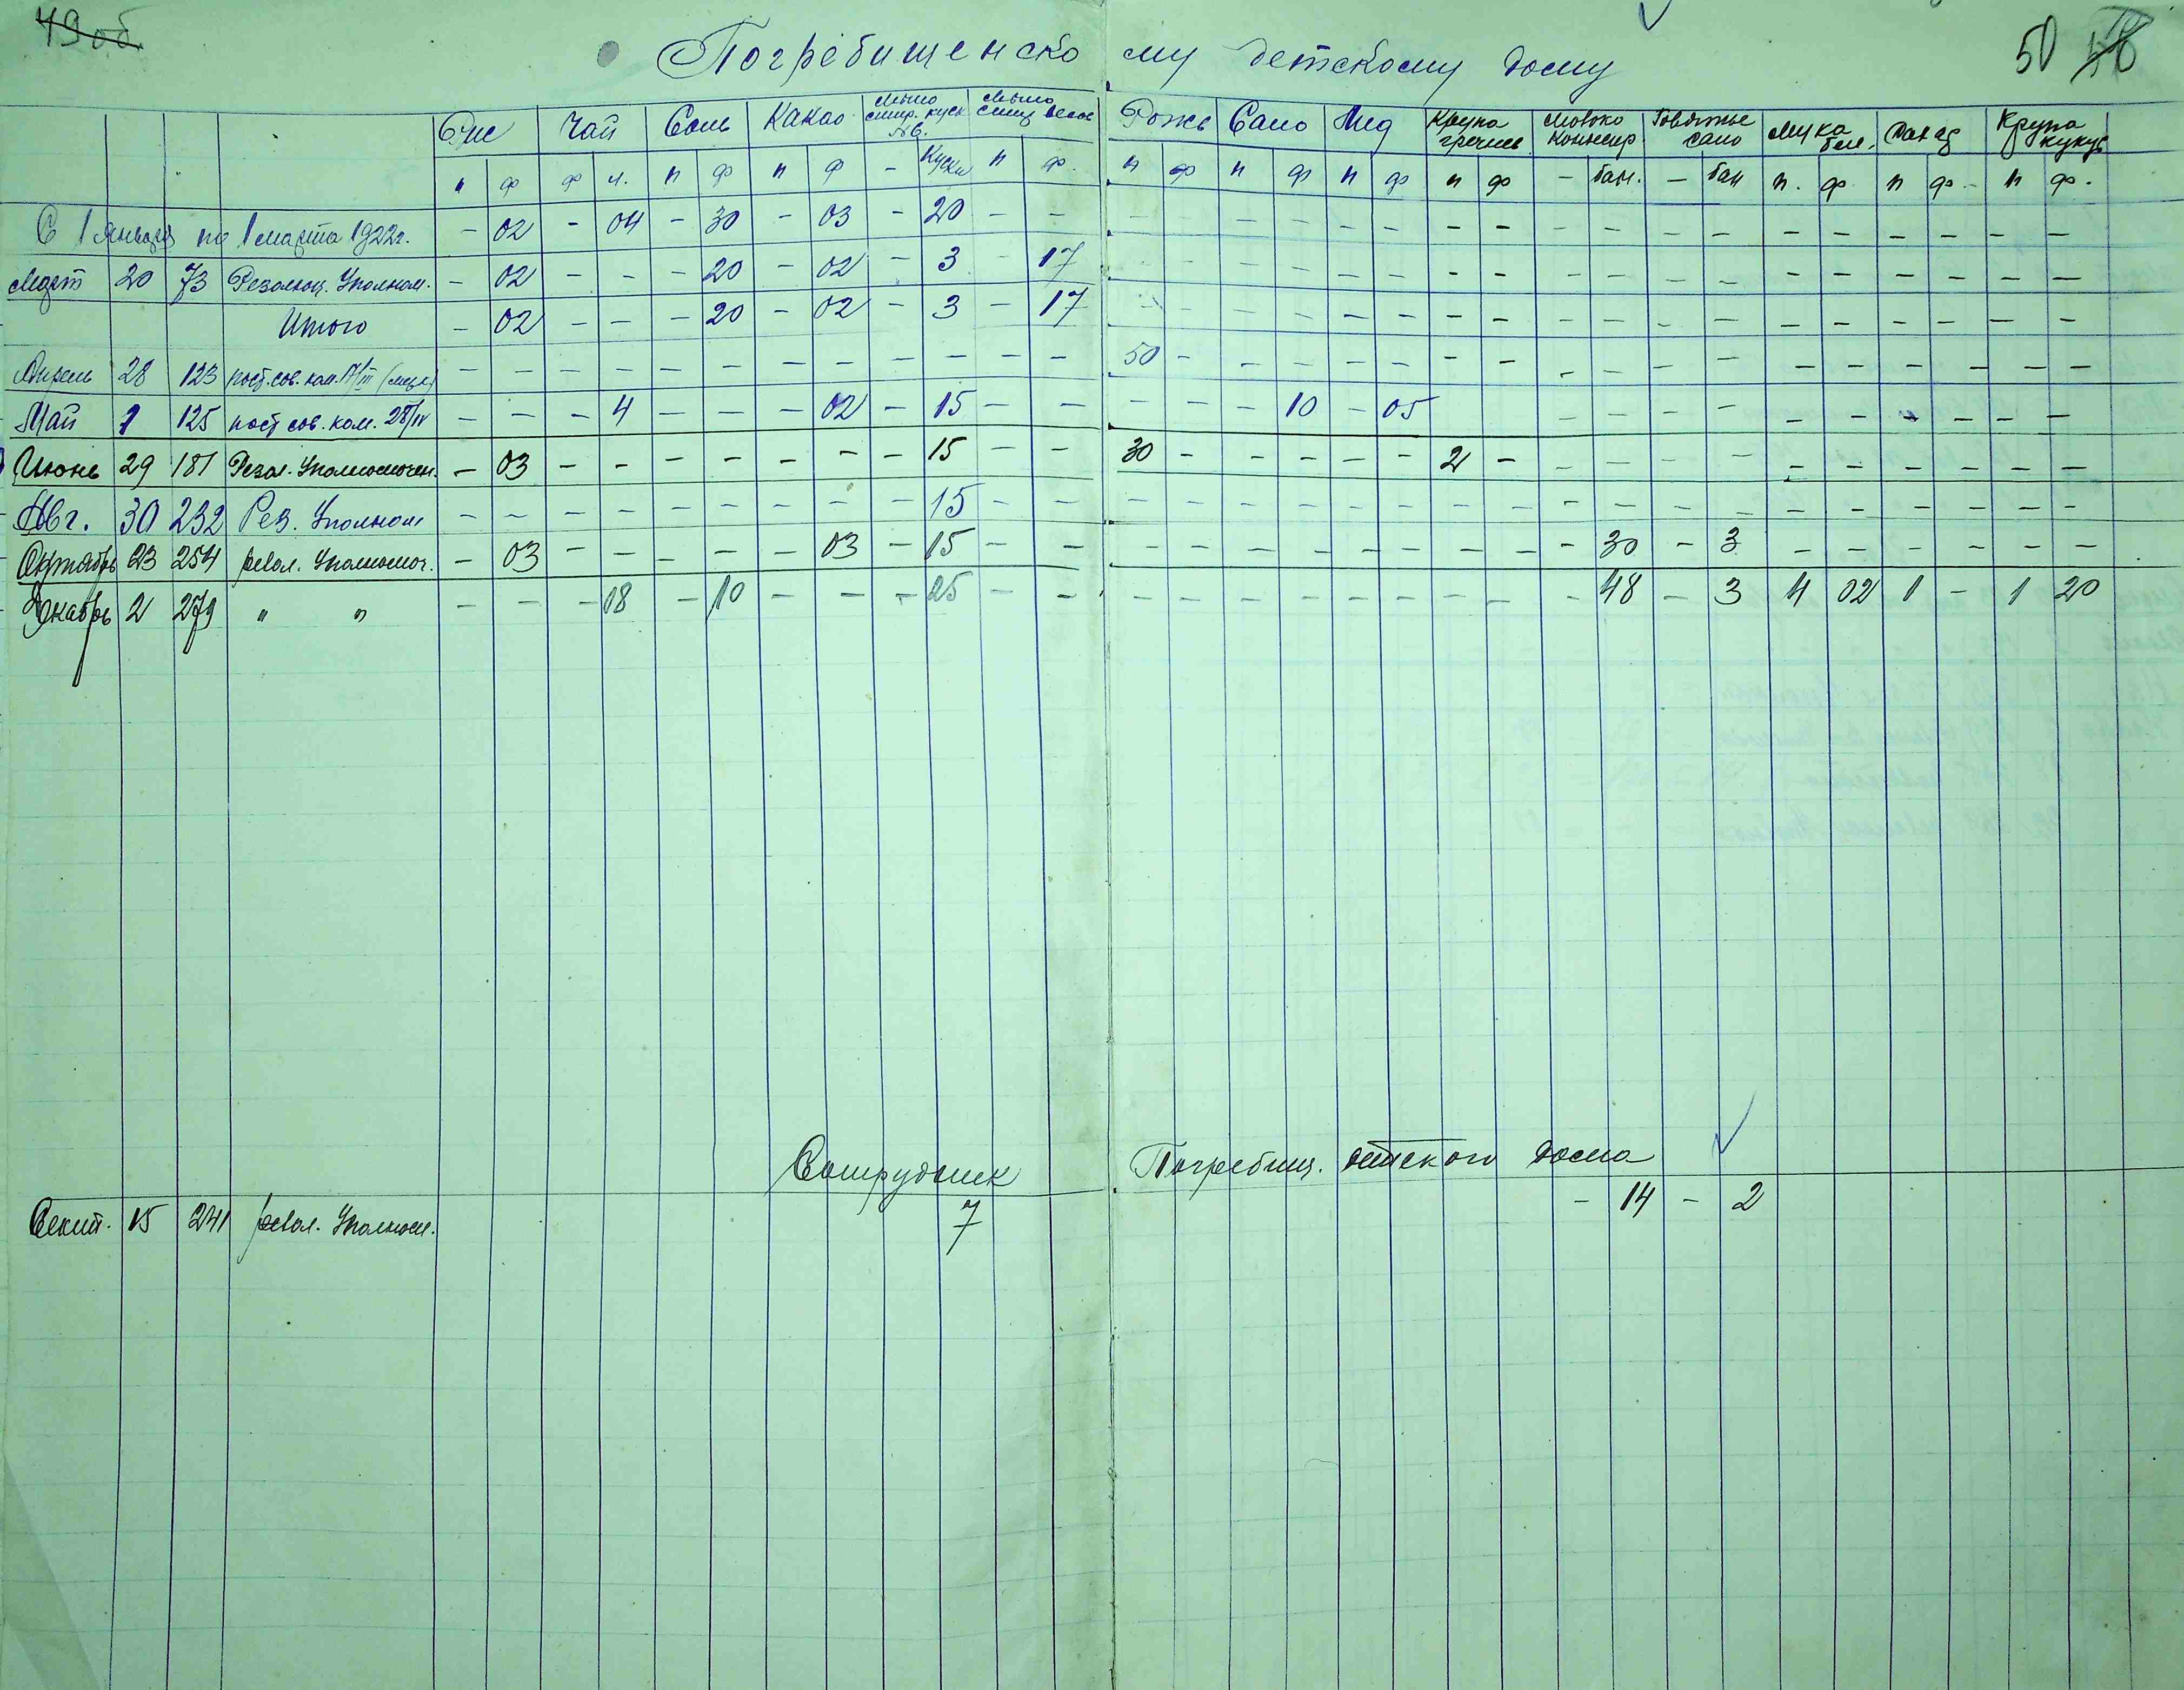 49об.
Погребищенскому детскому дому
50
Рис Чай Соль Какао Мыло куск Мыло Рожь Сало Мед Крупа гречнев. Молоко консер. Говяжье сало Мука бел. Сахар Крупа кукур
п ф ф ч. п ф п ф - Куски п ф. п ф п ф п ф п ф - бан. - бан п. ф. п ф. п ф.
С 1 января по 1 марта 1922г. - 02 - 04 - 30 - 03 - 20 - - - - - - - - - - - - - - - - - - - -
Март 20 73 Резолюц. Уполном. - 02 - - - 20 - 02 - 3 - 17 - - - - - - - - - - - - - - - - - -
Итого - 02 - - - 20 - 02 - 3 - 17 - - - - - - - - - - - - - - - - - -
Апрель 28 123 пост. сов. ком. - - - - - - - - - - - - 50 - - - - - - - - - - - - - - - - -
Май 1 125 пост сов. ком. 28/IV - - - 4 - - - 02 - 15 - - - - - 10 - 05 - - - - - - - - - -
Июнь 29 181 Резол. Уполномочен. - 03 - - - - - - - 15 - - 30 - - - - - 2 - - - - - - - - - - -
Авг. 30 232 Рез. Уполном - - - - - - - - - 15 - - - - - - - - - - - - - - - - - - - -
Октябрь 23 254 резол. Уполномоч. - 03 - - - - - 03 - 15 - - - - - - - - - - - 30 - 3 - - - - - -
Декабрь 2 279 " " - - - 18 - 10 - - - 25 - - - - - - - - - - - 48 - 3 4 02 1 - 1 20
Сотрудник Погребищ. детского дома
Сент. 15 241 резол. Уполном. 7 - 14 - 2